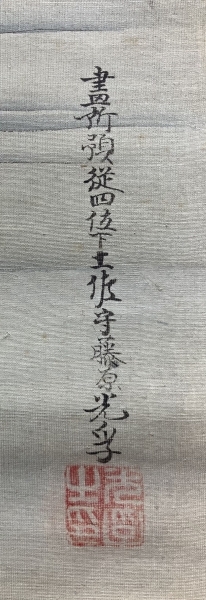 畫所預從四位下土佐守藤原光孚